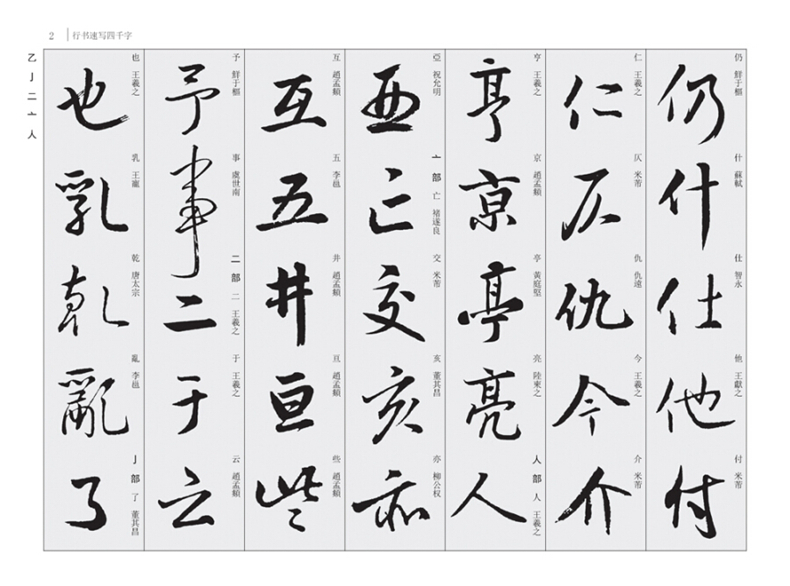 2 行书速写四千字
乙亅二亠人
也 王羲之
也
乳 王寵
乳
乾 唐太宗
乾
亂 李邕
亂
亅部 了 董其昌
了
予 鮮于樞
予
事 虞世南
事
二部 二 王羲之
二
于 王羲之
于
云 趙孟頫
云
互 趙孟頫
互
五 李邕
五
井 趙孟頫
井
亘 趙孟頫
亘
些 趙孟頫
些
亞 祝允明
亞
亠部 亡 褚遂良
亡
交 米芾
交
亥 董其昌
亥
亦 柳公权
亦
亨 王羲之
亨
京 趙孟頫
京
亭 黃庭堅
亭
亮 陸柬之
亮
人部 人 王羲之
人
仁 王羲之
仁
仄 米芾
仄
仇 仇遠
仇
今 王羲之
今
介 米芾
介
仍 鮮于樞
仍
什 蘇軾
什
仕 智永
仕
他 王獻之
他
付 米芾
付